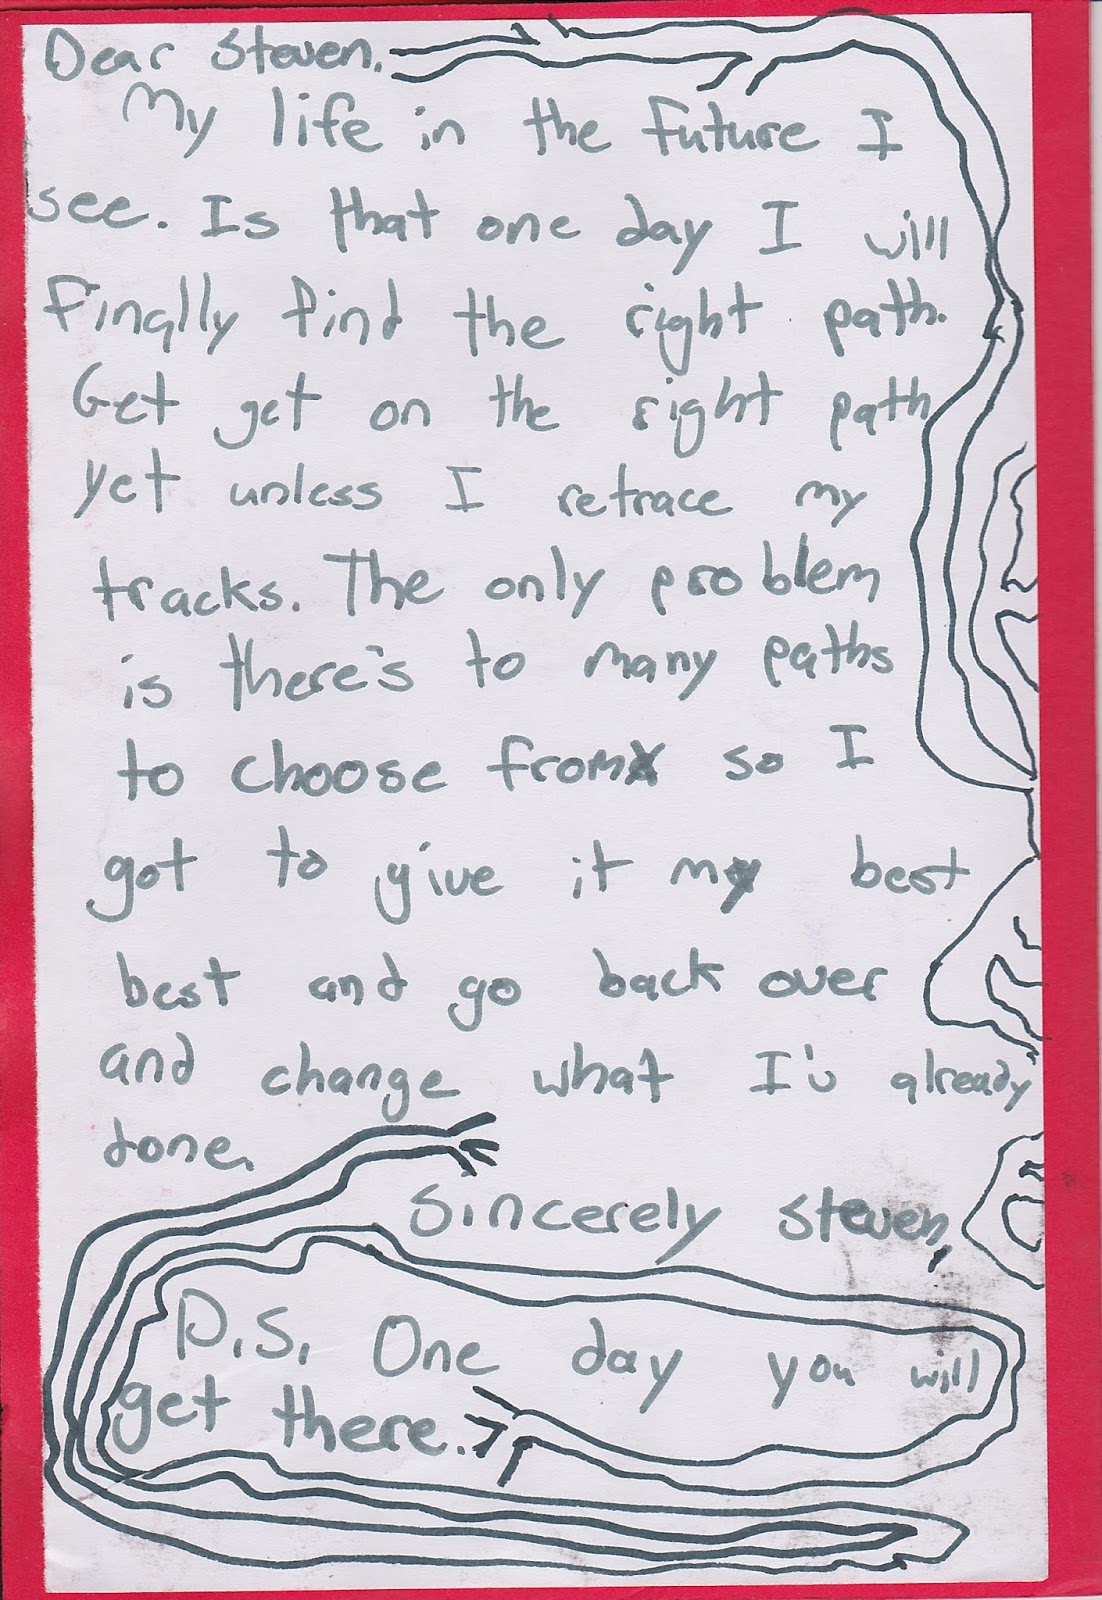 Dear Steven.
My life in the future I
see. Is that one day I will
Finally find the right path.
Get get on the right path
yet unless I retrace my
tracks. The only problem
is there's to many paths
to choose from so I
got to give it my best
best and go back over
and change what I'v already
done.
Sincerely Steven,
P.S. One day you will
get there.